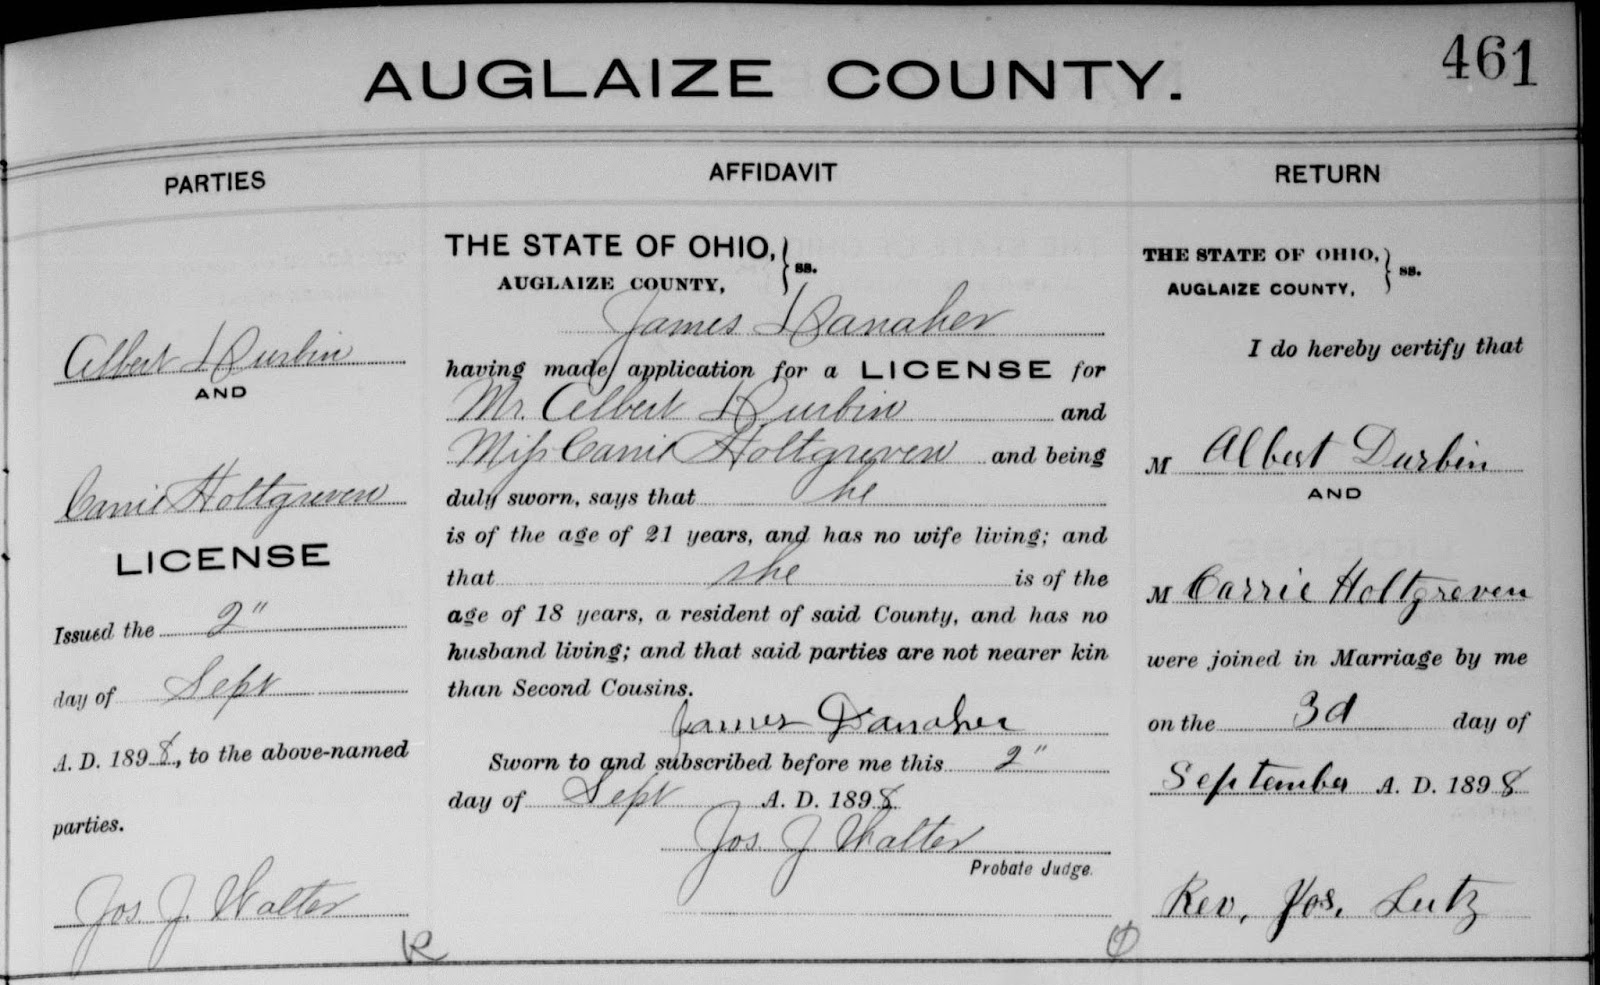 461
AUGLAIZE COUNTY.
PARTIES
Albert Durbin
AND
Carrie Holtgreven
LICENSE
Issued the 2"
day of Sept
A. D. 1898, to the above-named
parties.
Jos. J. Walter
AFFIDAVIT
THE STATE OF OHIO,
AUGLAIZE COUNTY, } ss.
James Danaher
having made application for a LICENSE for
Mr. Albert Durbin and
Miss Carrie Holtgreven and being
duly sworn, says that he
is of the age of 21 years, and has no wife living; and
that she is of the
age of 18 years, a resident of said County, and has no
husband living; and that said parties are not nearer kin
than Second Cousins.
James Danaher
Sworn to and subscribed before me this 2"
day of Sept A. D. 1898
Jos. J Walter
Probate Judge.
RETURN
THE STATE OF OHIO,
AUGLAIZE COUNTY, } ss.
I do hereby certify that
M Albert Durbin
AND
M Carrie Holtgreven
were joined in Marriage by me
on the 3d day of
September A. D. 1898
Rev. Jos. Lutz
R